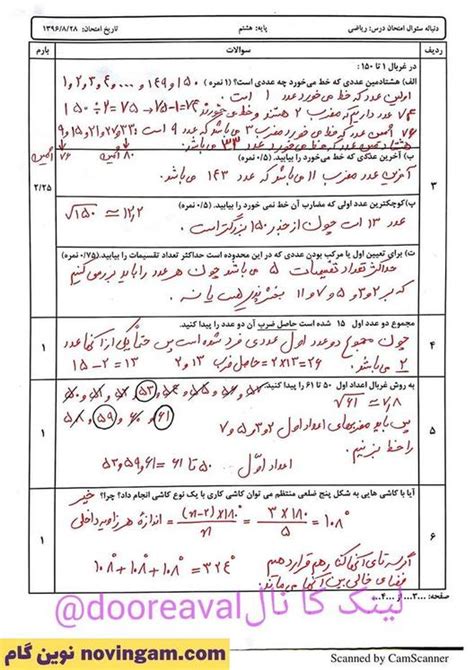 دنباله سئوال امتحان درس: ریاضی
پایه: هشتم
تاریخ امتحان: ۱۳۹۶/۸/۲۸
ردیف
سوالات
بارم
در غربال ۱ تا ۱۵۰:
الف) هشتادمین عددی که خط می‌خورد چه عددی است؟ (۱ نمره) ۱۵۰ و ۱۴۹ و ... و ۴ و ۳ و ۲ و ۱
اولین عدد که خط می‌خورد عدد ۱ است.
۷۴ عدد داریم که مضرب ۲ هستند و خط می‌خورند ۷۴=۱-۷۵ → ۷۵=۲÷۱۵۰
۷۶ امین عدد که خط می‌خورد مضرب ۳ می‌باشد که عدد ۹ است ۳۳ و ۲۷ و ۲۱ و ۱۵ و ۹
هشتادمین عدد که خط می‌خورد عدد ۳۳ می‌باشد.
۸۰ امین
۷۶ امین
ب) آخرین عددی که خط می‌خورد را بیابید. (۰/۵ نمره)
آخرین عدد مضرب ۱۱ می‌باشد که عدد ۱۴۳ می‌باشد.
۳
۲/۲۵
پ) کوچکترین عدد اولی که مضارب آن خط نمی خورد را بیابید. (۰/۵ نمره)
√۱۵۰ ≃ ۱۲٫۲
عدد ۱۳ است چون از جذر ۱۵۰ بزرگتر است.
ت) برای تعیین اول یا مرکب بودن عددی که در این محدوده است حداکثر تعداد تقسیمات را بیابید. (۰/۷۵ نمره)
حداکثر تعداد تقسیمات ۵ می‌باشد چون هر عدد را باید بررسی کنیم
که بر ۲ و ۳ و ۵ و ۷ و ۱۱ بخش پذیر هست یا نه.
مجموع دو عدد اول ۱۵ شده است حاصل ضرب آن دو عدد را پیدا کنید.
۴
۱
چون مجموع دو عدد اول عددی فرد شده است پس حتماً یکی از آنها عدد
۲ می‌باشد. ۱۳=۲-۱۵ ۱۳ و ۲ حاصل ضرب ۲۶=۱۳×۲
به روش غربال اعداد اول ۵۰ تا ۶۱ را پیدا کنید.
۵۰ و ۵۱ و ۵۲ و ۵۳ و ۵۴ و ۵۵ و ۵۶ و ۵۷
√۶۱ ≃ ۷٫۸
۵۸ و ۵۹ و ۶۰ و ۶۱
۵
۱
پس باید مضرب‌های اعداد اول ۲ و ۳ و ۵ و ۷
را خط بزنیم.
اعداد اول ۵۰ تا ۶۱ = ۶۱ و ۵۹ و ۵۳
آیا با کاشی هایی به شکل پنج ضلعی منتظم می توان کاشی کاری با یک نوع کاشی انجام داد؟ چرا؟ خیر
اندازهٔ هر زاویه داخلی = (n-۲)×۱۸۰/n = ۳×۱۸۰/۵ = ۱۰۸°
۶
۱
اگر سه تای آنها کنار هم قرار دهیم
۱۰۸° + ۱۰۸° + ۱۰۸° = ۳۲۴°
فضای خالی بین آنها می‌ماند.
صفحه: ...۳... از ...۴...
لینک کانال @dooreaval
نوین گام novingam.com
Scanned by CamScanner